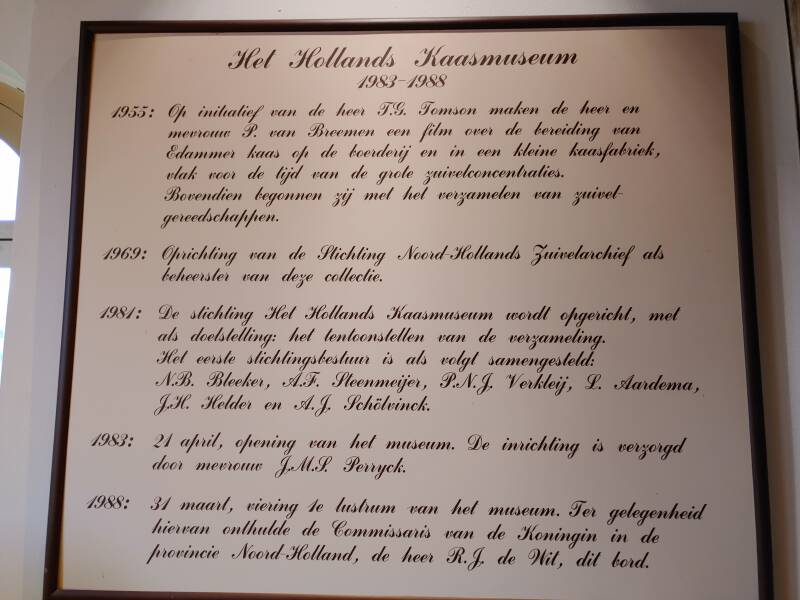 Het Hollands Kaasmuseum
1983-1988
1955: Op initiatief van de heer T.G. Tomson maken de heer en
mevrouw P. van Breemen een film over de bereiding van
Edammer kaas op de boerderij en in een kleine kaasfabriek,
vlak voor de tijd van de grote zuivelconcentraties.
Bovendien begonnen zij met het verzamelen van zuivel-
gereedschappen.
1969: Oprichting van de Stichting Noord-Hollands Zuivelarchief als
beheerster van deze collectie.
1981: De stichting Het Hollands Kaasmuseum wordt opgericht, met
als doelstelling: het tentoonstellen van de verzameling.
Het eerste stichtingsbestuur is als volgt samengesteld:
N.B. Bleeker, A.F. Steenmeijer, P.N.J. Verkleij, L. Aardema,
J.H. Helder en A.J. Schölvinck.
1983: 21 april, opening van het museum. De inrichting is verzorgd
door mevrouw J.M.S. Perryck.
1988: 31 maart, viering 1e lustrum van het museum. Ter gelegenheid
hiervan onthulde de Commissaris van de Koningin in de
provincie Noord-Holland, de heer R.J. de Wit, dit bord.